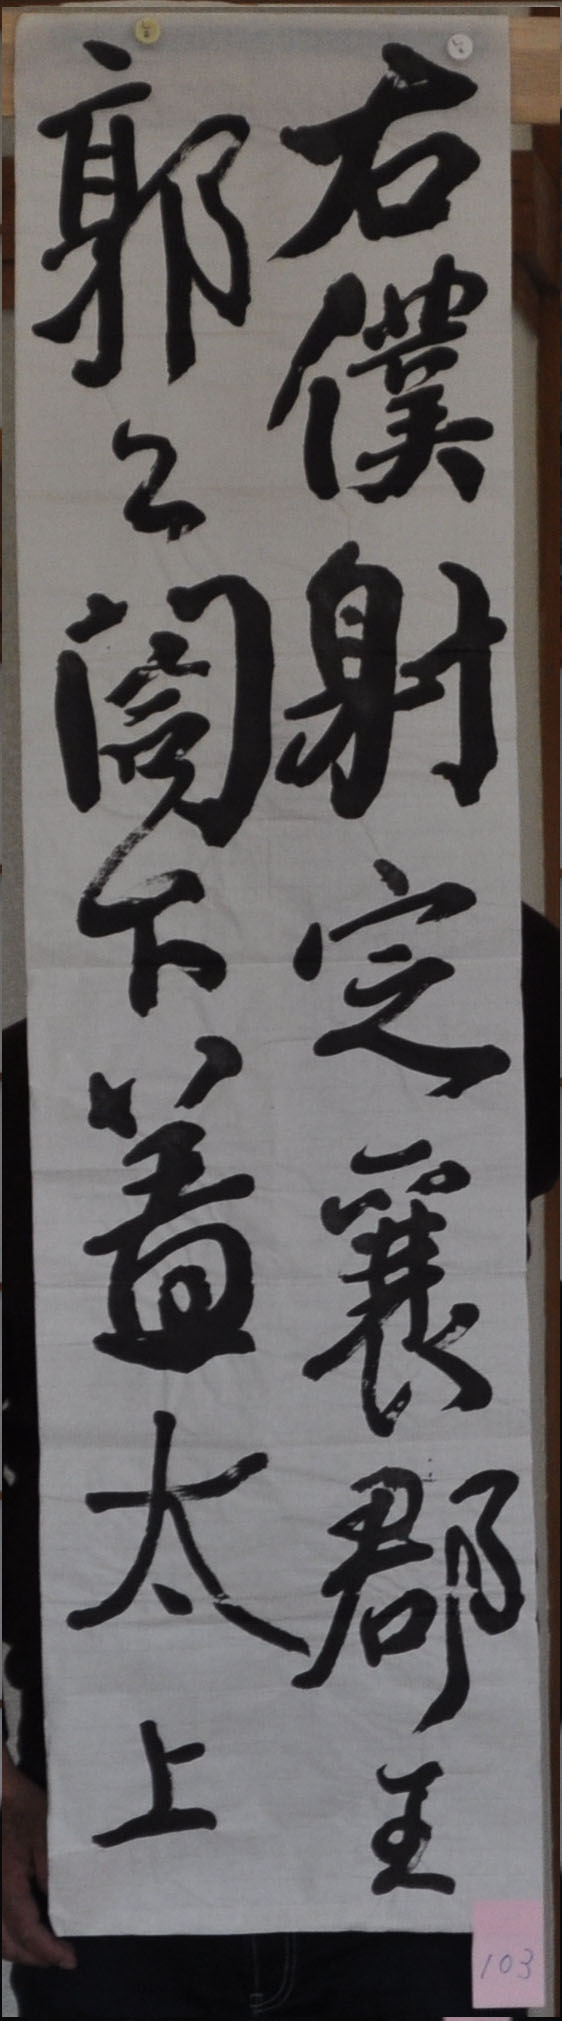 右僕射定襄郡王
郭公閤下蓋太上
103